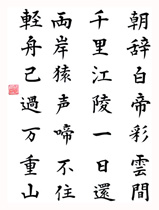 朝辞白帝彩雲間
千里江陵一日還
両岸猿声啼不住
軽舟已過万重山